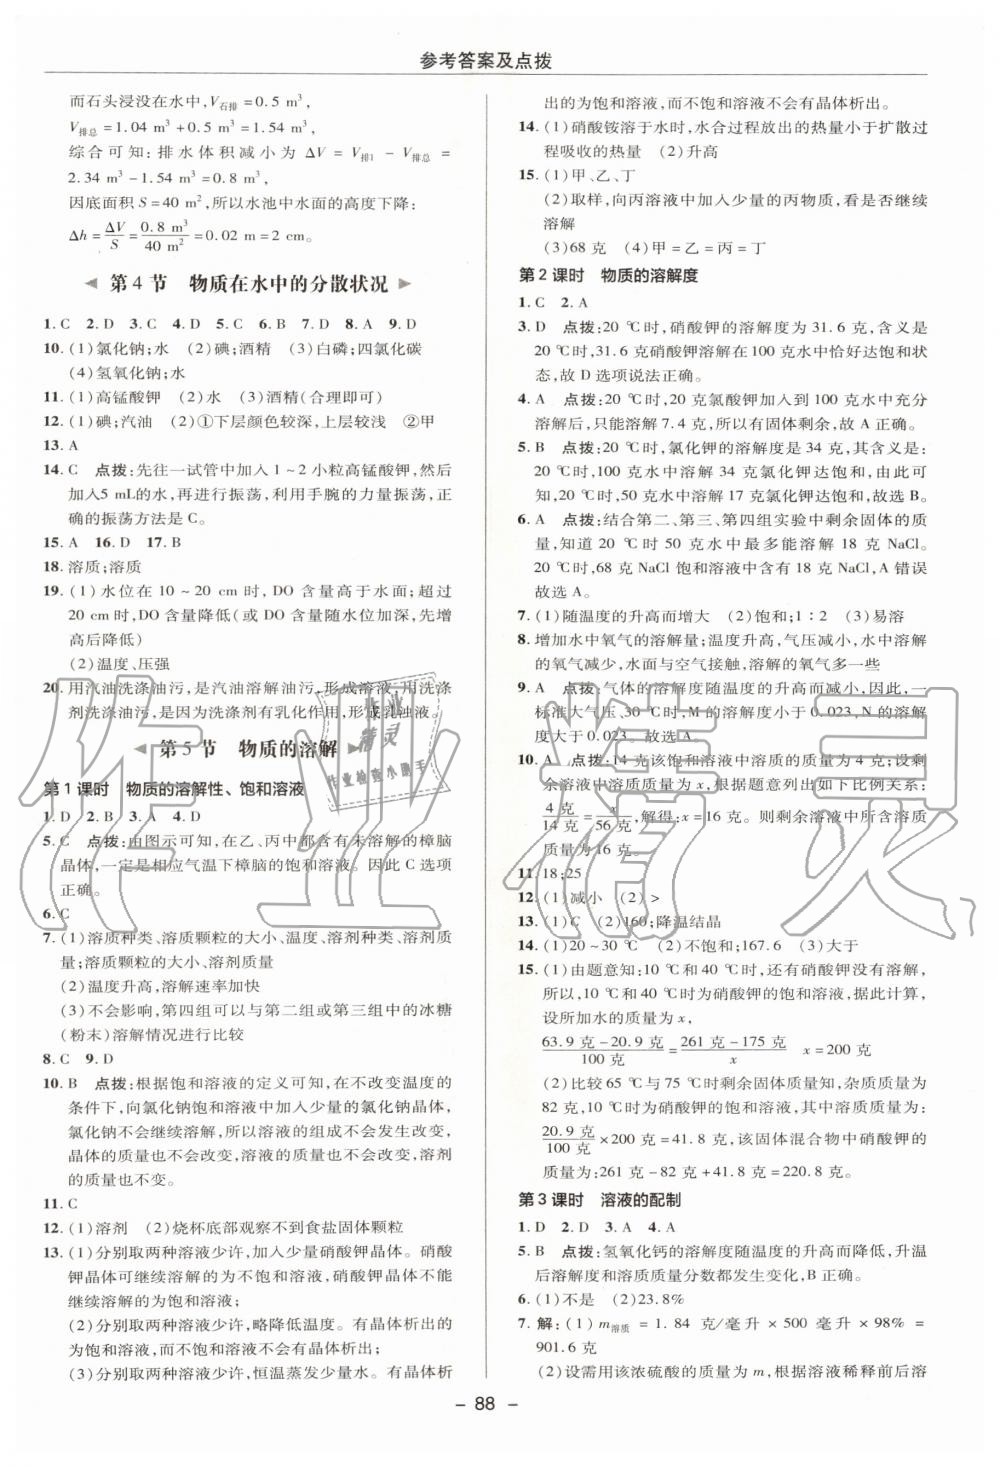 参考答案及点拨
而石头浸没在水中,V石排=0.5 m³,
V排总=1.04 m³+0.5 m³=1.54 m³,
综合可知:排水体积减小为 ΔV = V排1 − V排总 =
2.34 m³−1.54 m³=0.8 m³,
因底面积 S=40 m²,所以水池中水面的高度下降:
Δh=ΔV/S=0.8 m³/40 m²=0.02 m=2 cm。
第 4 节 物质在水中的分散状况
1. C 2. D 3. C 4. D 5. C 6. B 7. D 8. A 9. D
10. (1)氯化钠;水 (2)碘;酒精 (3)白磷;四氯化碳
(4)氢氧化钠;水
11. (1)高锰酸钾 (2)水 (3)酒精(合理即可)
12. (1)碘;汽油 (2)①下层颜色较深,上层较浅 ②甲
13. A
14. C 点拨:先往一试管中加入 1~2 小粒高锰酸钾,然后
加入5 mL的水,再进行振荡,利用手腕的力量振荡,正
确的振荡方法是 C。
15. A 16. D 17. B
18. 溶质;溶质
19. (1)水位在 10~20 cm 时,DO 含量高于水面;超过
20 cm时,DO含量降低(或 DO含量随水位加深,先增
高后降低)
(2)温度、压强
20. 用汽油洗涤油污,是汽油溶解油污,形成溶液;用洗涤
剂洗涤油污,是因为洗涤剂有乳化作用,形成乳浊液。
第 5 节 物质的溶解
第 1 课时 物质的溶解性、饱和溶液
1. D 2. B 3. A 4. D
5. C 点拨:由图示可知,在乙、丙中都含有未溶解的樟脑
晶体,一定是相应气温下樟脑的饱和溶液。因此 C 选项
正确。
6. C
7. (1)溶质种类、溶质颗粒的大小、温度、溶剂种类、溶剂质
量;溶质颗粒的大小、溶剂质量
(2)温度升高,溶解速率加快
(3)不会影响,第四组可以与第二组或第三组中的冰糖
(粉末)溶解情况进行比较
8. C 9. D
10. B 点拨:根据饱和溶液的定义可知,在不改变温度的
条件下,向氯化钠饱和溶液中加入少量的氯化钠晶体,
氯化钠不会继续溶解,所以溶液的组成不会发生改变,
晶体的质量也不会改变,溶液的质量也不会改变,溶剂
的质量也不变。
11. C
12. (1)溶剂 (2)烧杯底部观察不到食盐固体颗粒
13. (1)分别取两种溶液少许,加入少量硝酸钾晶体。硝酸
钾晶体可继续溶解的为不饱和溶液,硝酸钾晶体不能
继续溶解的为饱和溶液;
(2)分别取两种溶液少许,略降低温度。有晶体析出的
为饱和溶液,而不饱和溶液不会有晶体析出;
(3)分别取两种溶液少许,恒温蒸发少量水。有晶体析
出的为饱和溶液,而不饱和溶液不会有晶体析出。
14. (1)硝酸铵溶于水时,水合过程放出的热量小于扩散过
程吸收的热量 (2)升高
15. (1)甲、乙、丁
(2)取样,向丙溶液中加入少量的丙物质,看是否继续
溶解
(3)68 克 (4)甲=乙=丙=丁
第 2 课时 物质的溶解度
1. C 2. A
3. D 点拨:20 ℃时,硝酸钾的溶解度为 31.6 克,含义是
20 ℃时,31.6 克硝酸钾溶解在 100 克水中恰好达饱和状
态,故 D 选项说法正确。
4. A 点拨:20 ℃时,20 克氯酸钾加入到 100 克水中充分
溶解后,只能溶解 7.4 克,所以有固体剩余,故 A 正确。
5. B 点拨:20 ℃时,氯化钾的溶解度是 34 克,其含义是:
20 ℃时,100 克水中溶解 34 克氯化钾达饱和,由此可
知,20 ℃时,50 克水中溶解 17 克氯化钾达饱和,故选 B。
6. A 点拨:结合第二、第三、第四组实验中剩余固体的质
量,知道 20 ℃时 50 克水中最多能溶解 18 克 NaCl。
20 ℃时,68 克 NaCl 饱和溶液中含有 18 克 NaCl,A 错误
故选 A。
7. (1)随温度的升高而增大 (2)饱和;1∶2 (3)易溶
8. 增加水中氧气的溶解量;温度升高,气压减小,水中溶解
的氧气减少,水面与空气接触,溶解的氧气多一些
9. A 点拨:气体的溶解度随温度的升高而减小,因此,一
标准大气压、30 ℃时,M 的溶解度小于 0.023,N 的溶解
度大于 0.023。故选 A。
10. A 点拨:14 克该饱和溶液中溶质的质量为 4 克;设剩
余溶液中溶质质量为 x,根据题意列出如下比例关系:
4 克/14 克=x/56 克,解得:x=16 克。则剩余溶液中所含溶质
质量为 16 克。
11. 18;25
12. (1)减小 (2)>
13. (1)C (2)160;降温结晶
14. (1)20~30 ℃ (2)不饱和;167.6 (3)大于
15. (1)由题意知:10 ℃和 40 ℃时,还有硝酸钾没有溶解,
所以,10 ℃和 40 ℃时为硝酸钾的饱和溶液,据此计算,
设所加水的质量为 x,
63.9 克−20.9 克/100 克=261 克−175 克/x x=200 克
(2)比较 65 ℃与 75 ℃时剩余固体质量知,杂质质量为
82 克,10 ℃时为硝酸钾的饱和溶液,其中溶质质量为:
20.9 克/100 克×200 克=41.8 克,该固体混合物中硝酸钾的
质量为:261 克−82 克+41.8 克=220.8 克。
第 3 课时 溶液的配制
1. D 2. D 3. A 4. A
5. B 点拨:氢氧化钙的溶解度随温度的升高而降低,升温
后溶解度和溶质质量分数都发生变化,B 正确。
6. (1)不是 (2)23.8%
7. 解:(1)m溶质 = 1.84 克/毫升 × 500 毫升 × 98% =
901.6 克
(2)设需用该浓硫酸的质量为 m,根据溶液稀释前后溶
– 88 –
作业精灵
作业
精灵
作业检查小助手